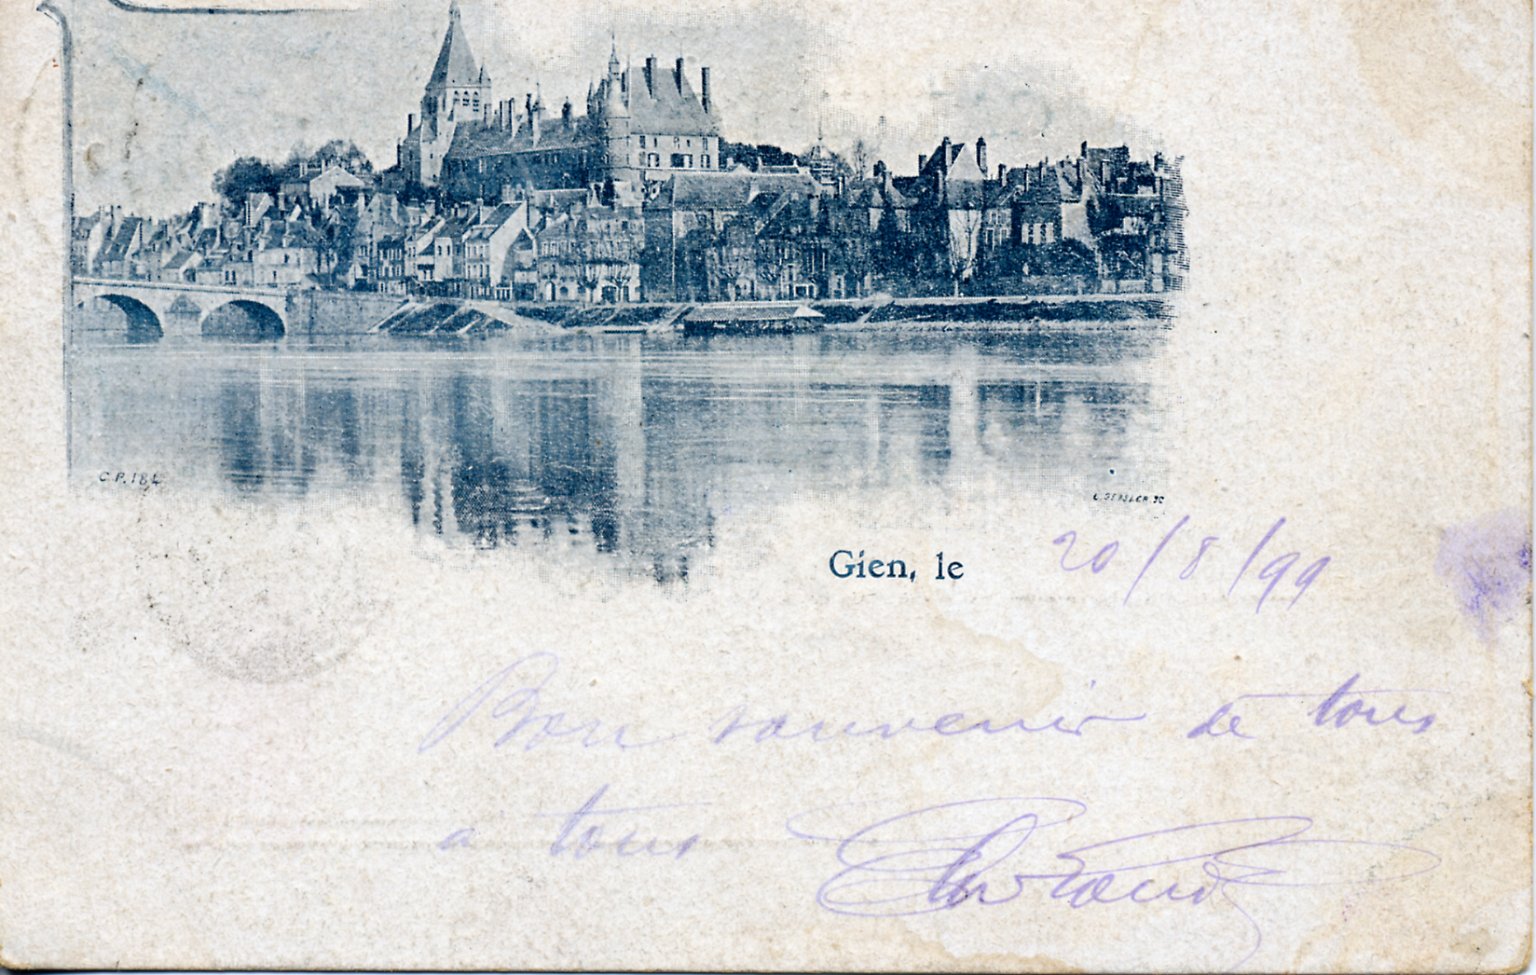 C.P. 184
Gien, le 20/8/99
Bon souvenir de tous
a tous